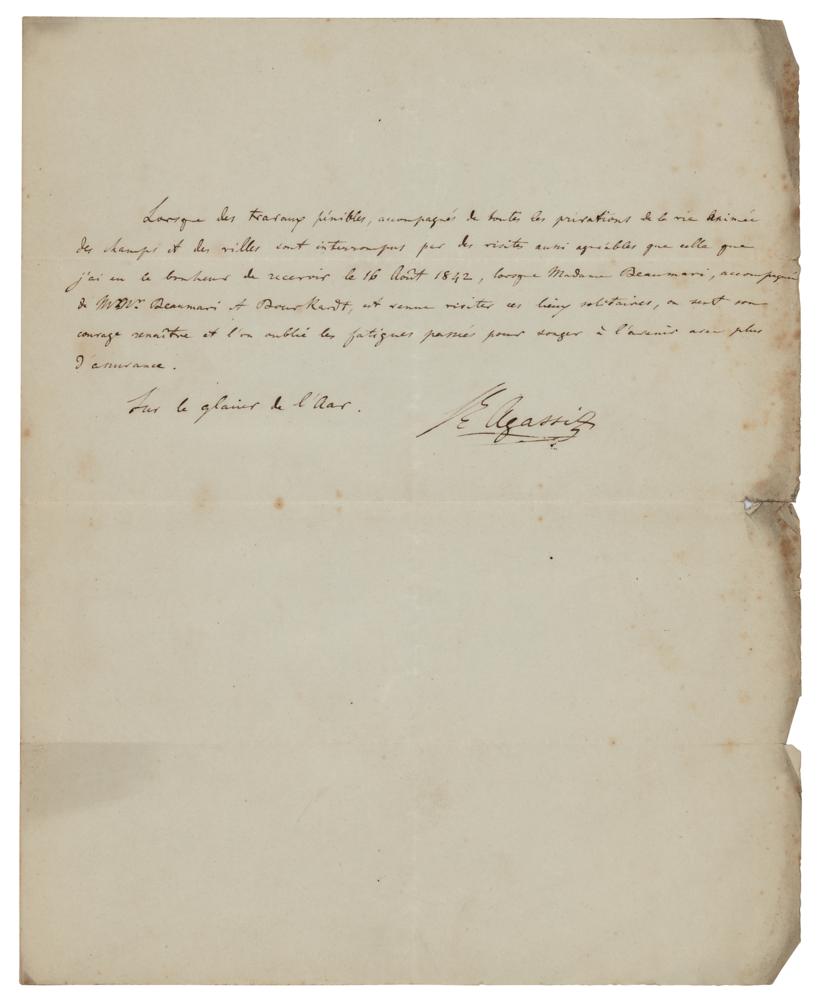 Lorsque des travaux pénibles, accompagnés de toutes les privations de la vie animée
des champs et des villes sont interrompus par des visites aussi agréables que celle que
j'ai eu le bonheur de recevoir le 16 Août 1842, lorsque Madame Beaumari, accompagnée
de Beaumari et Bourkardt, est venue visiter ces lieux solitaires, on sent son
courage renaître et l'on oublie les fatigues passées pour songer à l'avenir avec plus
d'assurance.
Sur le glacier de l'Aar.
Agassiz